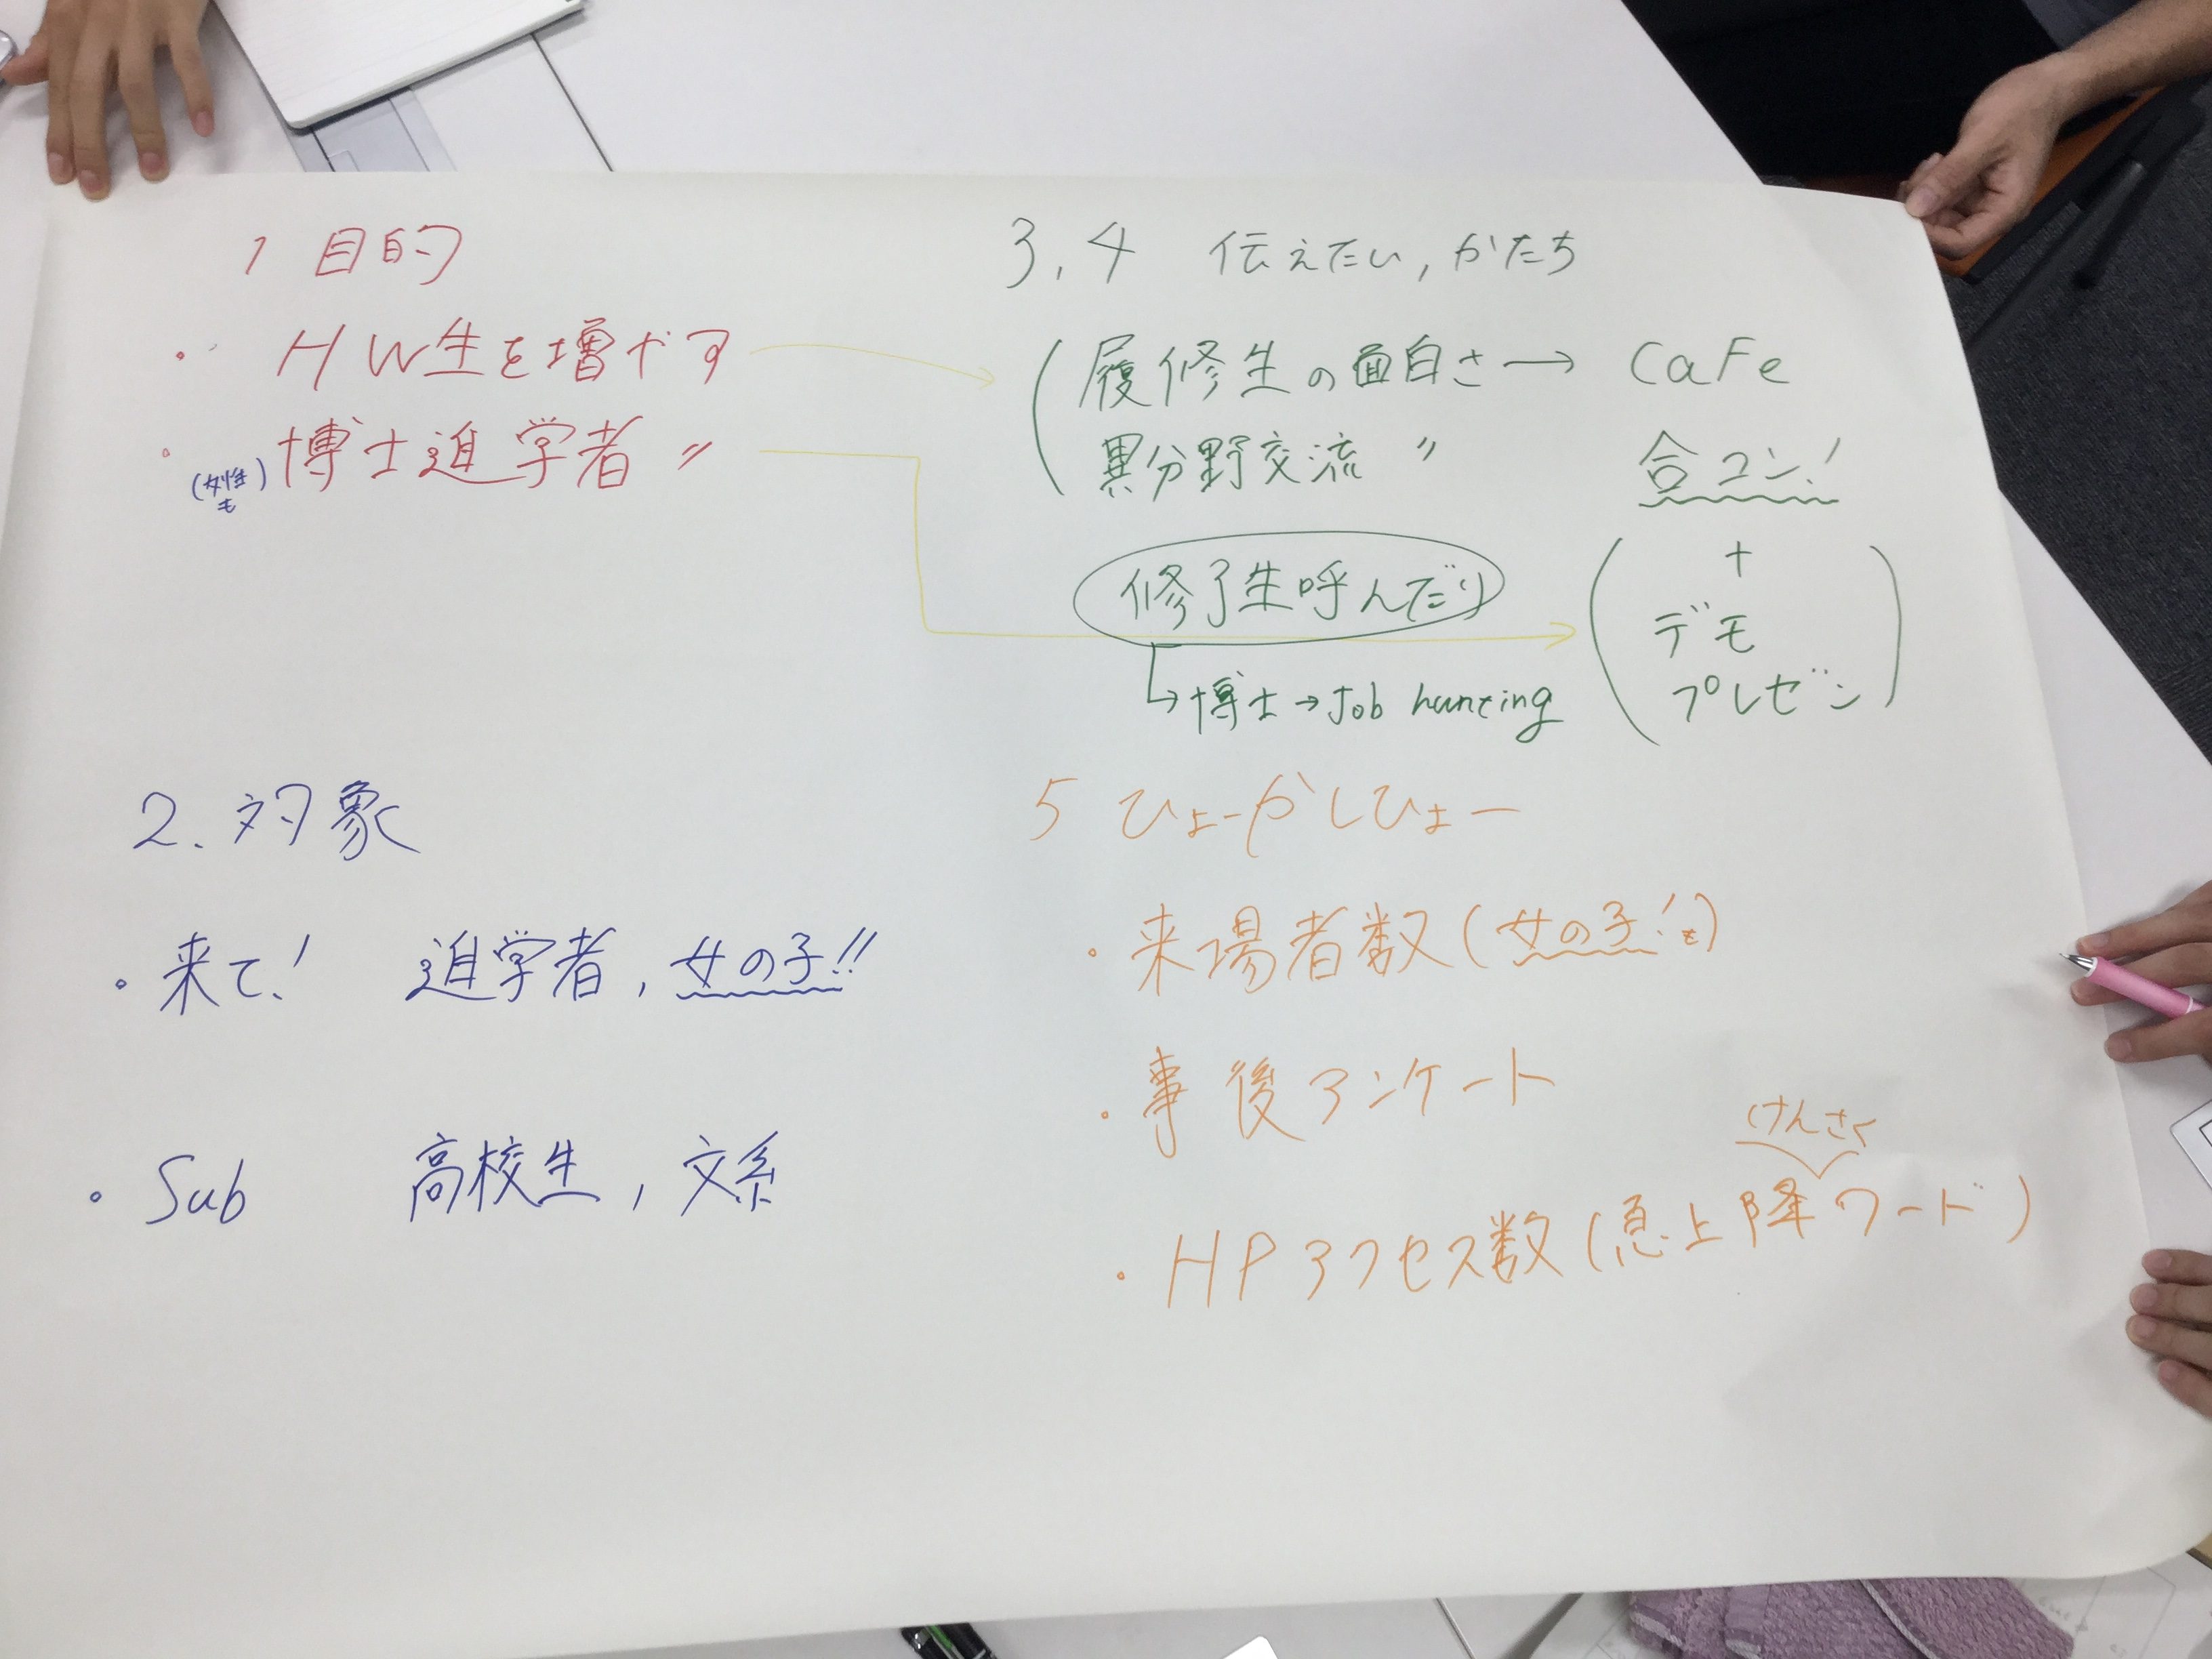 1 目的
・ HW生を増やす
・ 博士進学者 〃
(女性も)
2. 対象
・来て! 進学者, 女の子!!
・Sub 高校生, 文系
3, 4 伝えたい, かたち
履修生の面白さ → CaFe
異分野交流 〃 合コン!
修了生呼んだり
↳ 博士 → Job hunting
(+
デモ
プレゼン)
5 ひょーかしひょー
・来場者数 (女の子!も)
・事後アンケート
けんさく
・HPアクセス数 (急上昇ワード)